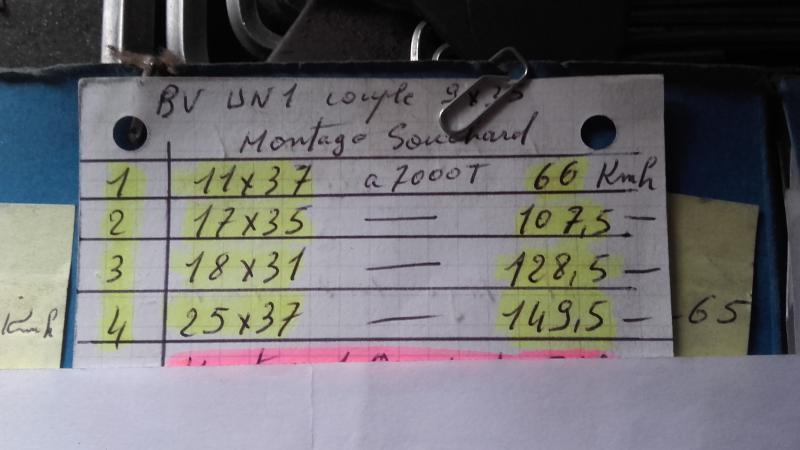 BV UN1 couple 9x35
Montage Souchard
1 11x37 a 7000T 66 Kmh
2 17x35 — 107,5 —
3 18x31 — 128,5 —
4 25x37 — 149,5 —
Kmh
65